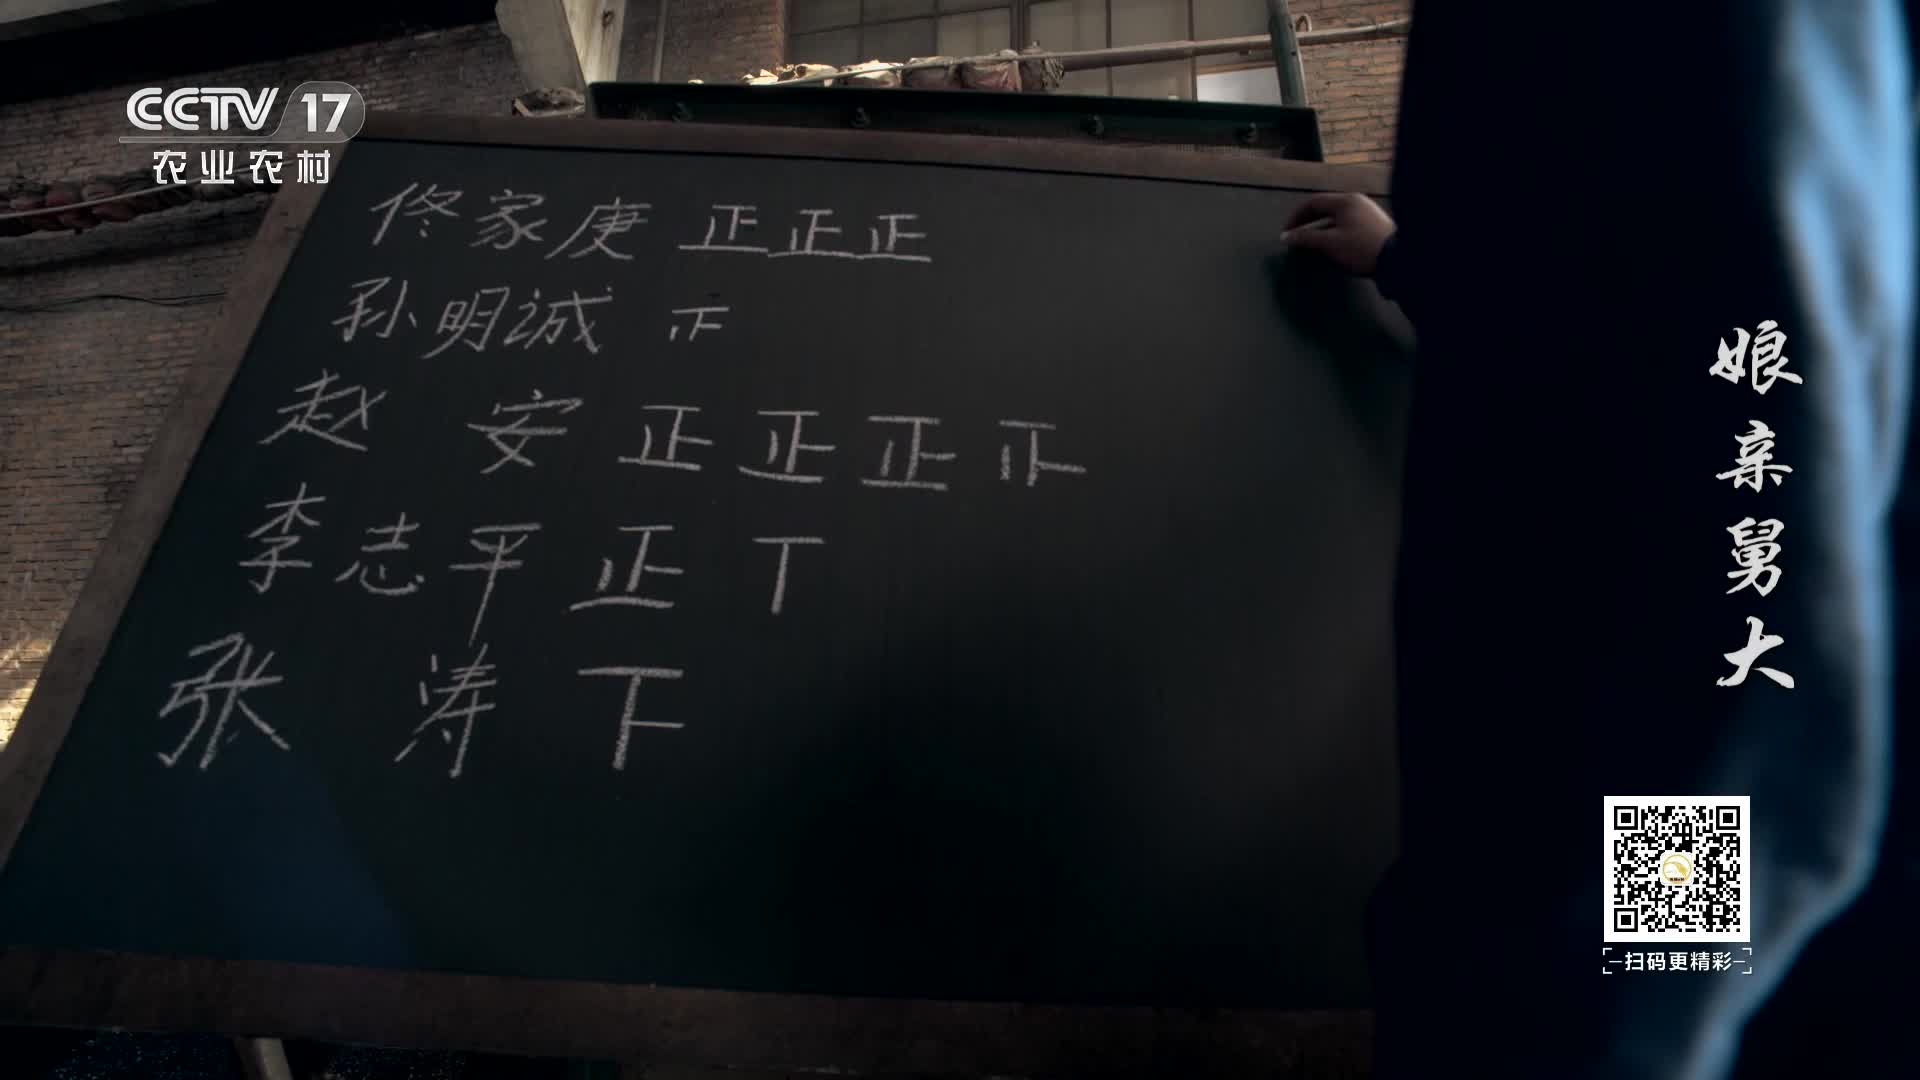 CCTV 17
农业农村
佟家庚 正正正
孙明诚
赵 安 正正正
李志平 正 丅
张 涛 下
娘亲舅大
扫码更精彩